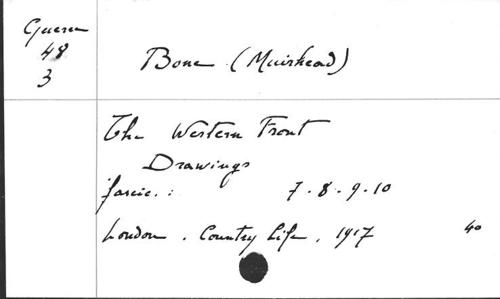 Guerre
48
3
Bone (Muirhead)
The Western Front
Drawings
fascic. : 7 - 8 - 9 - 10
London . Country Life . 1917 4o